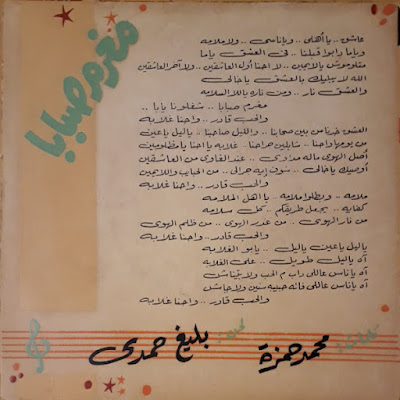 مغرم صبابا
عاشق .. يا أهلى .. ويا ناسى .. ولا ملامه
وياما دابوا قبلنا .. فى العشق ياما
متلومونيش يا لايمين .. لا احنا أول العاشقين .. ولا آخر العاشقين
الله لا يبليك بالعشق يا خالى
والعشق نار .. ومن ناره يا للا السلامه
مغرم صبابا .. شغلونا يابا ..
والحب قادر .. واحنا غلابه
العشق خدنا من بين صحابنا .. والليل صاحبنا .. ياليل ياعين
من يومها واحنا .. شايلين جراحنا .. غلابه يا احنا يا مظلومين
أصل الهوى ماله مداوى .. عند الغاوى من العاشقين
أوصيك يا خالى .. سوق إيه جرالى .. من الحبايب واللايمين
والحب قادر .. واحنا غلابه
ملامه .. وبطلوا ملامه .. يا أهل الملامه
كفايه .. يجعل طريقكم .. كل سلامه
من نار الهوى .. من غدر الهوى .. من ظلم الهوى
والحب قادر .. واحنا غلابه
ياليل ياعين ياليل .. يابو الغلابه
آه ياليل طويل .. على الغلابه
آه يا ناس عاللى داب م الحب ولا بيتناش
آه يا ناس عاللى فاته حبيبه سنين ولا جاش
والحب قادر .. واحنا غلابه
محمد حمزة
بليغ حمدى